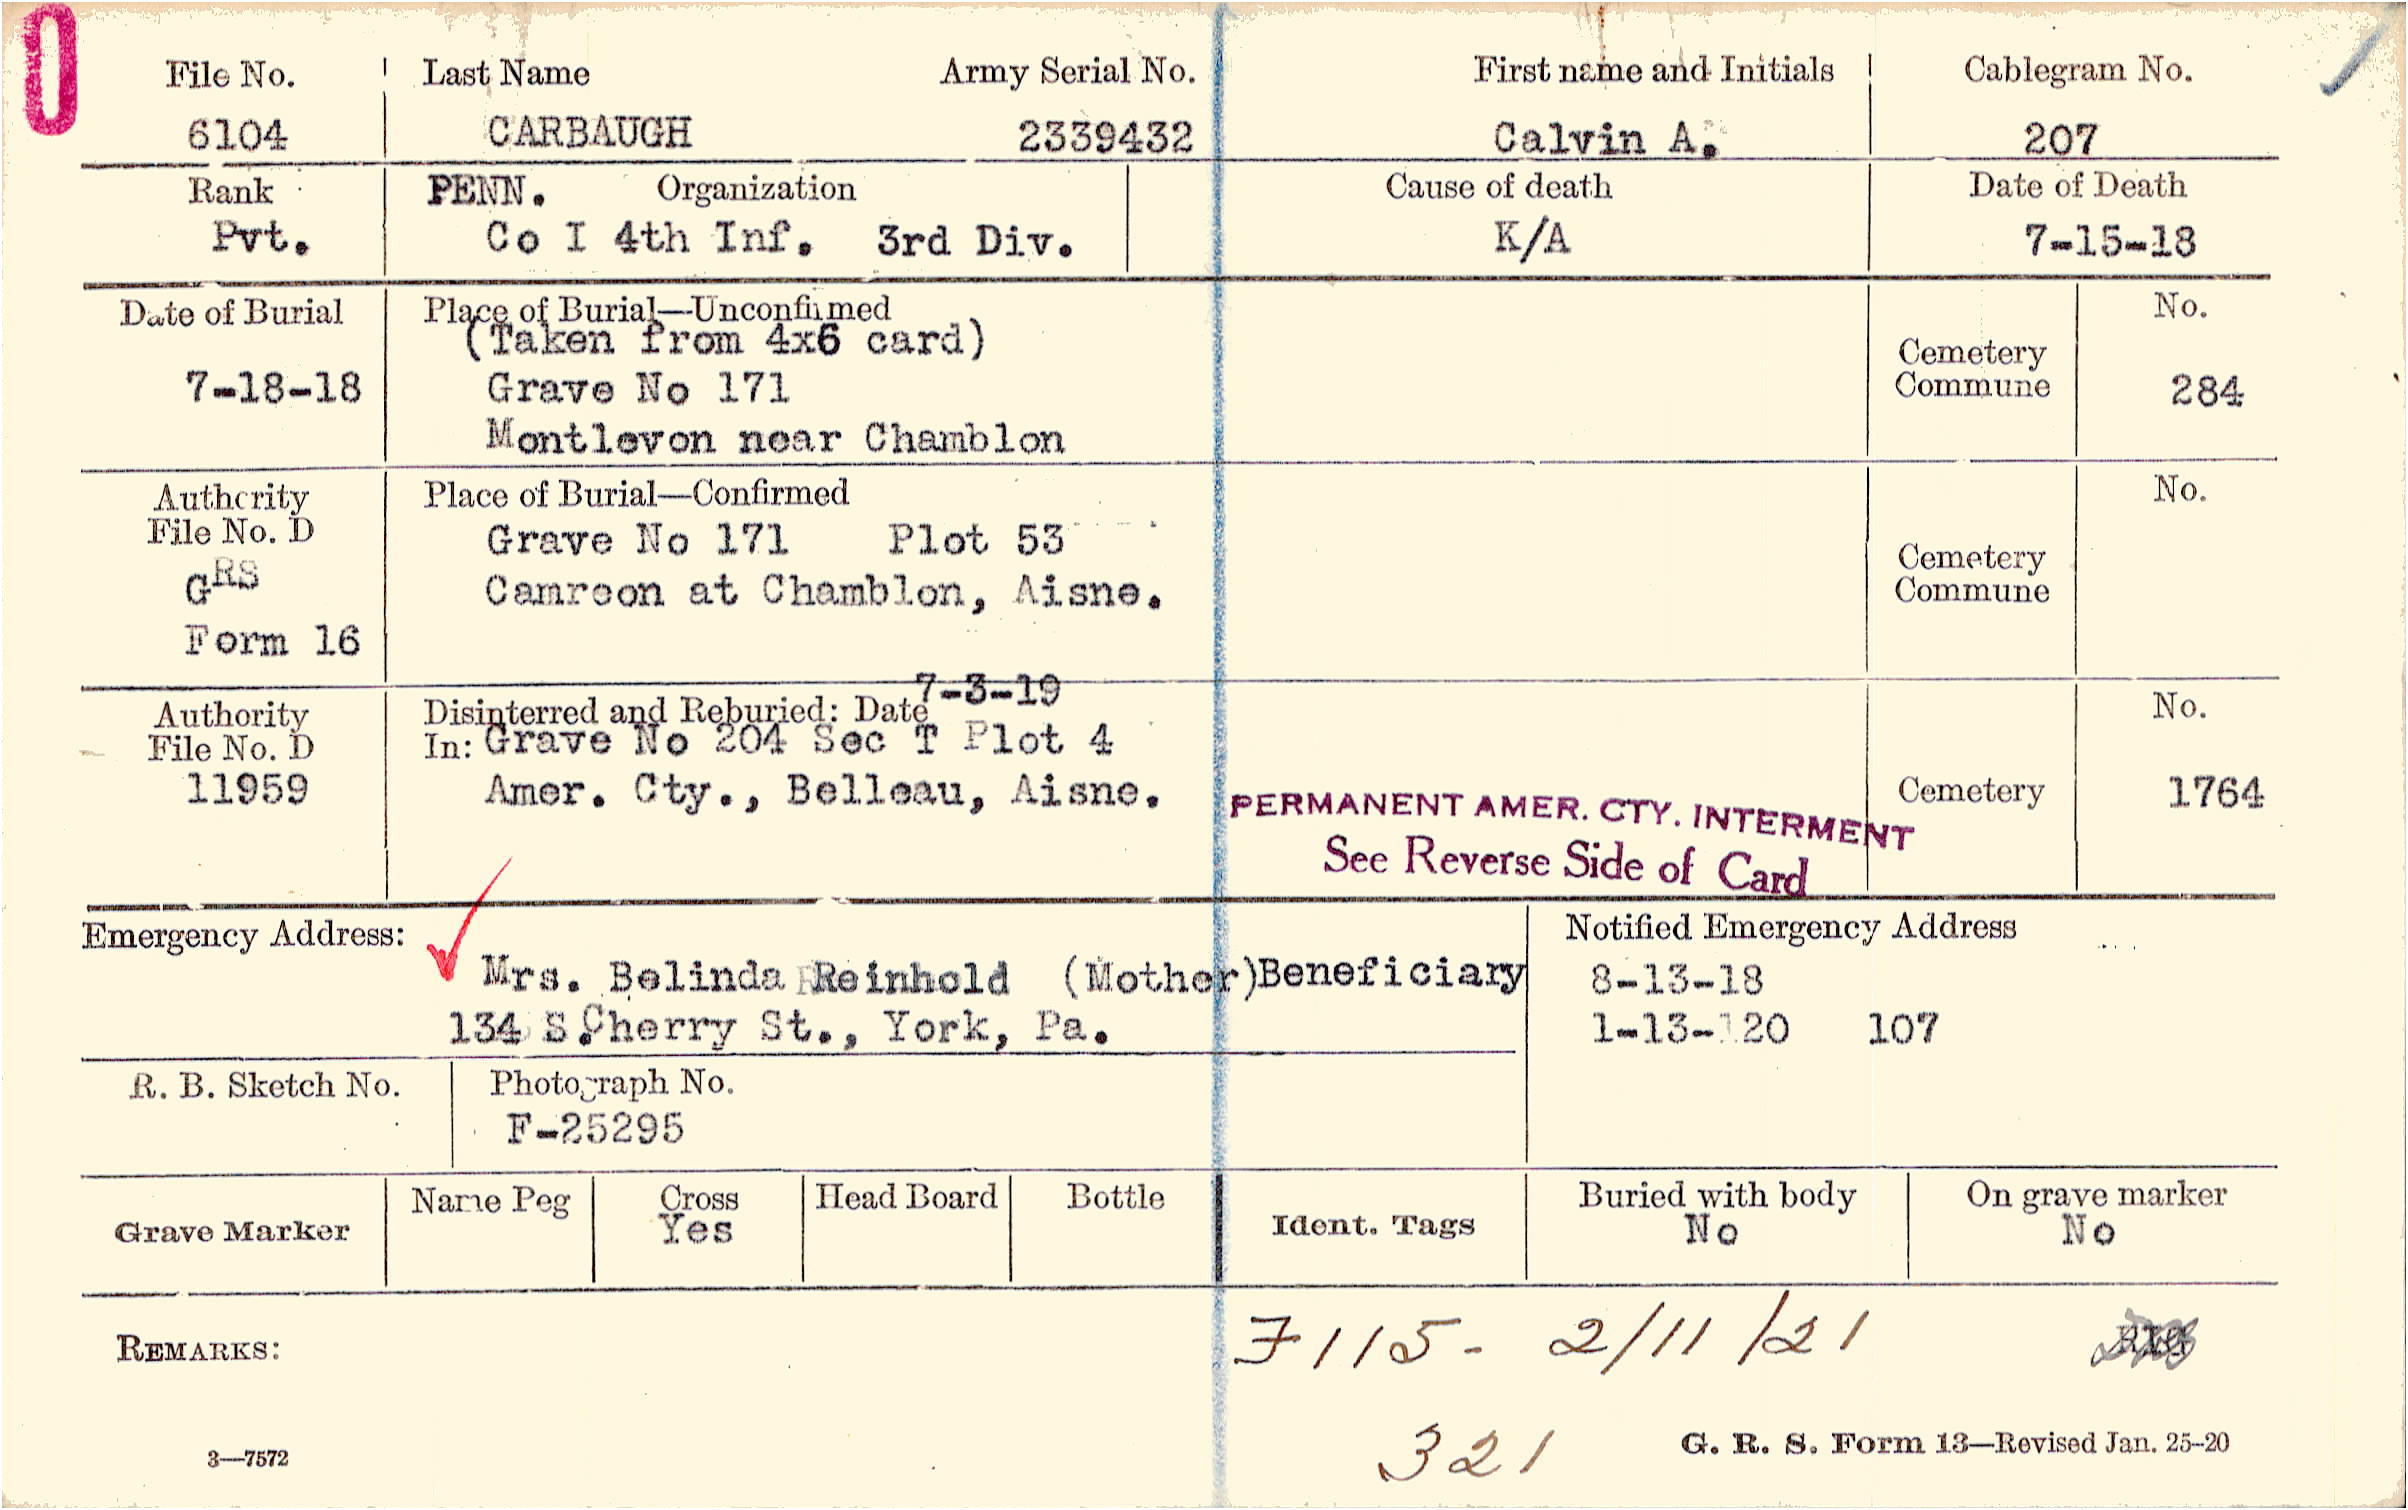 0
File No. Last Name Army Serial No. First name and Initials Cablegram No.
6104 CARBAUGH 2339432 Calvin A. 207
Rank PENN. Organization Cause of death Date of Death
Pvt. Co I 4th Inf. 3rd Div. K/A 7-15-18
Date of Burial Place of Burial—Unconfirmed No.
(Taken from 4x6 card) Cemetery
7-18-18 Grave No 171 Commune 284
Montlevon near Chamblon
Authority Place of Burial—Confirmed No.
File No. D Grave No 171 Plot 53 Cemetery
GRS Camreon at Chamblon, Aisne. Commune
Form 16
7-3-19
Authority Disinterred and Reburied: Date No.
File No. D In: Grave No 204 Sec T Plot 4
11959 Amer. Cty., Belleau, Aisne. Cemetery 1764
PERMANENT AMER. CTY. INTERMENT
See Reverse Side of Card
Emergency Address: Notified Emergency Address
Mrs. Belinda Reinhold (Mother)Beneficiary 8-13-18
134 S.Cherry St., York, Pa. 1-13-20 107
R. B. Sketch No. Photograph No.
F-25295
Grave Marker Name Peg Cross Head Board Bottle Ident. Tags Buried with body On grave marker
Yes No No
REMARKS: 7115- 2/11/21
321
3—7572 G. R. S. Form 13—Revised Jan. 25-20